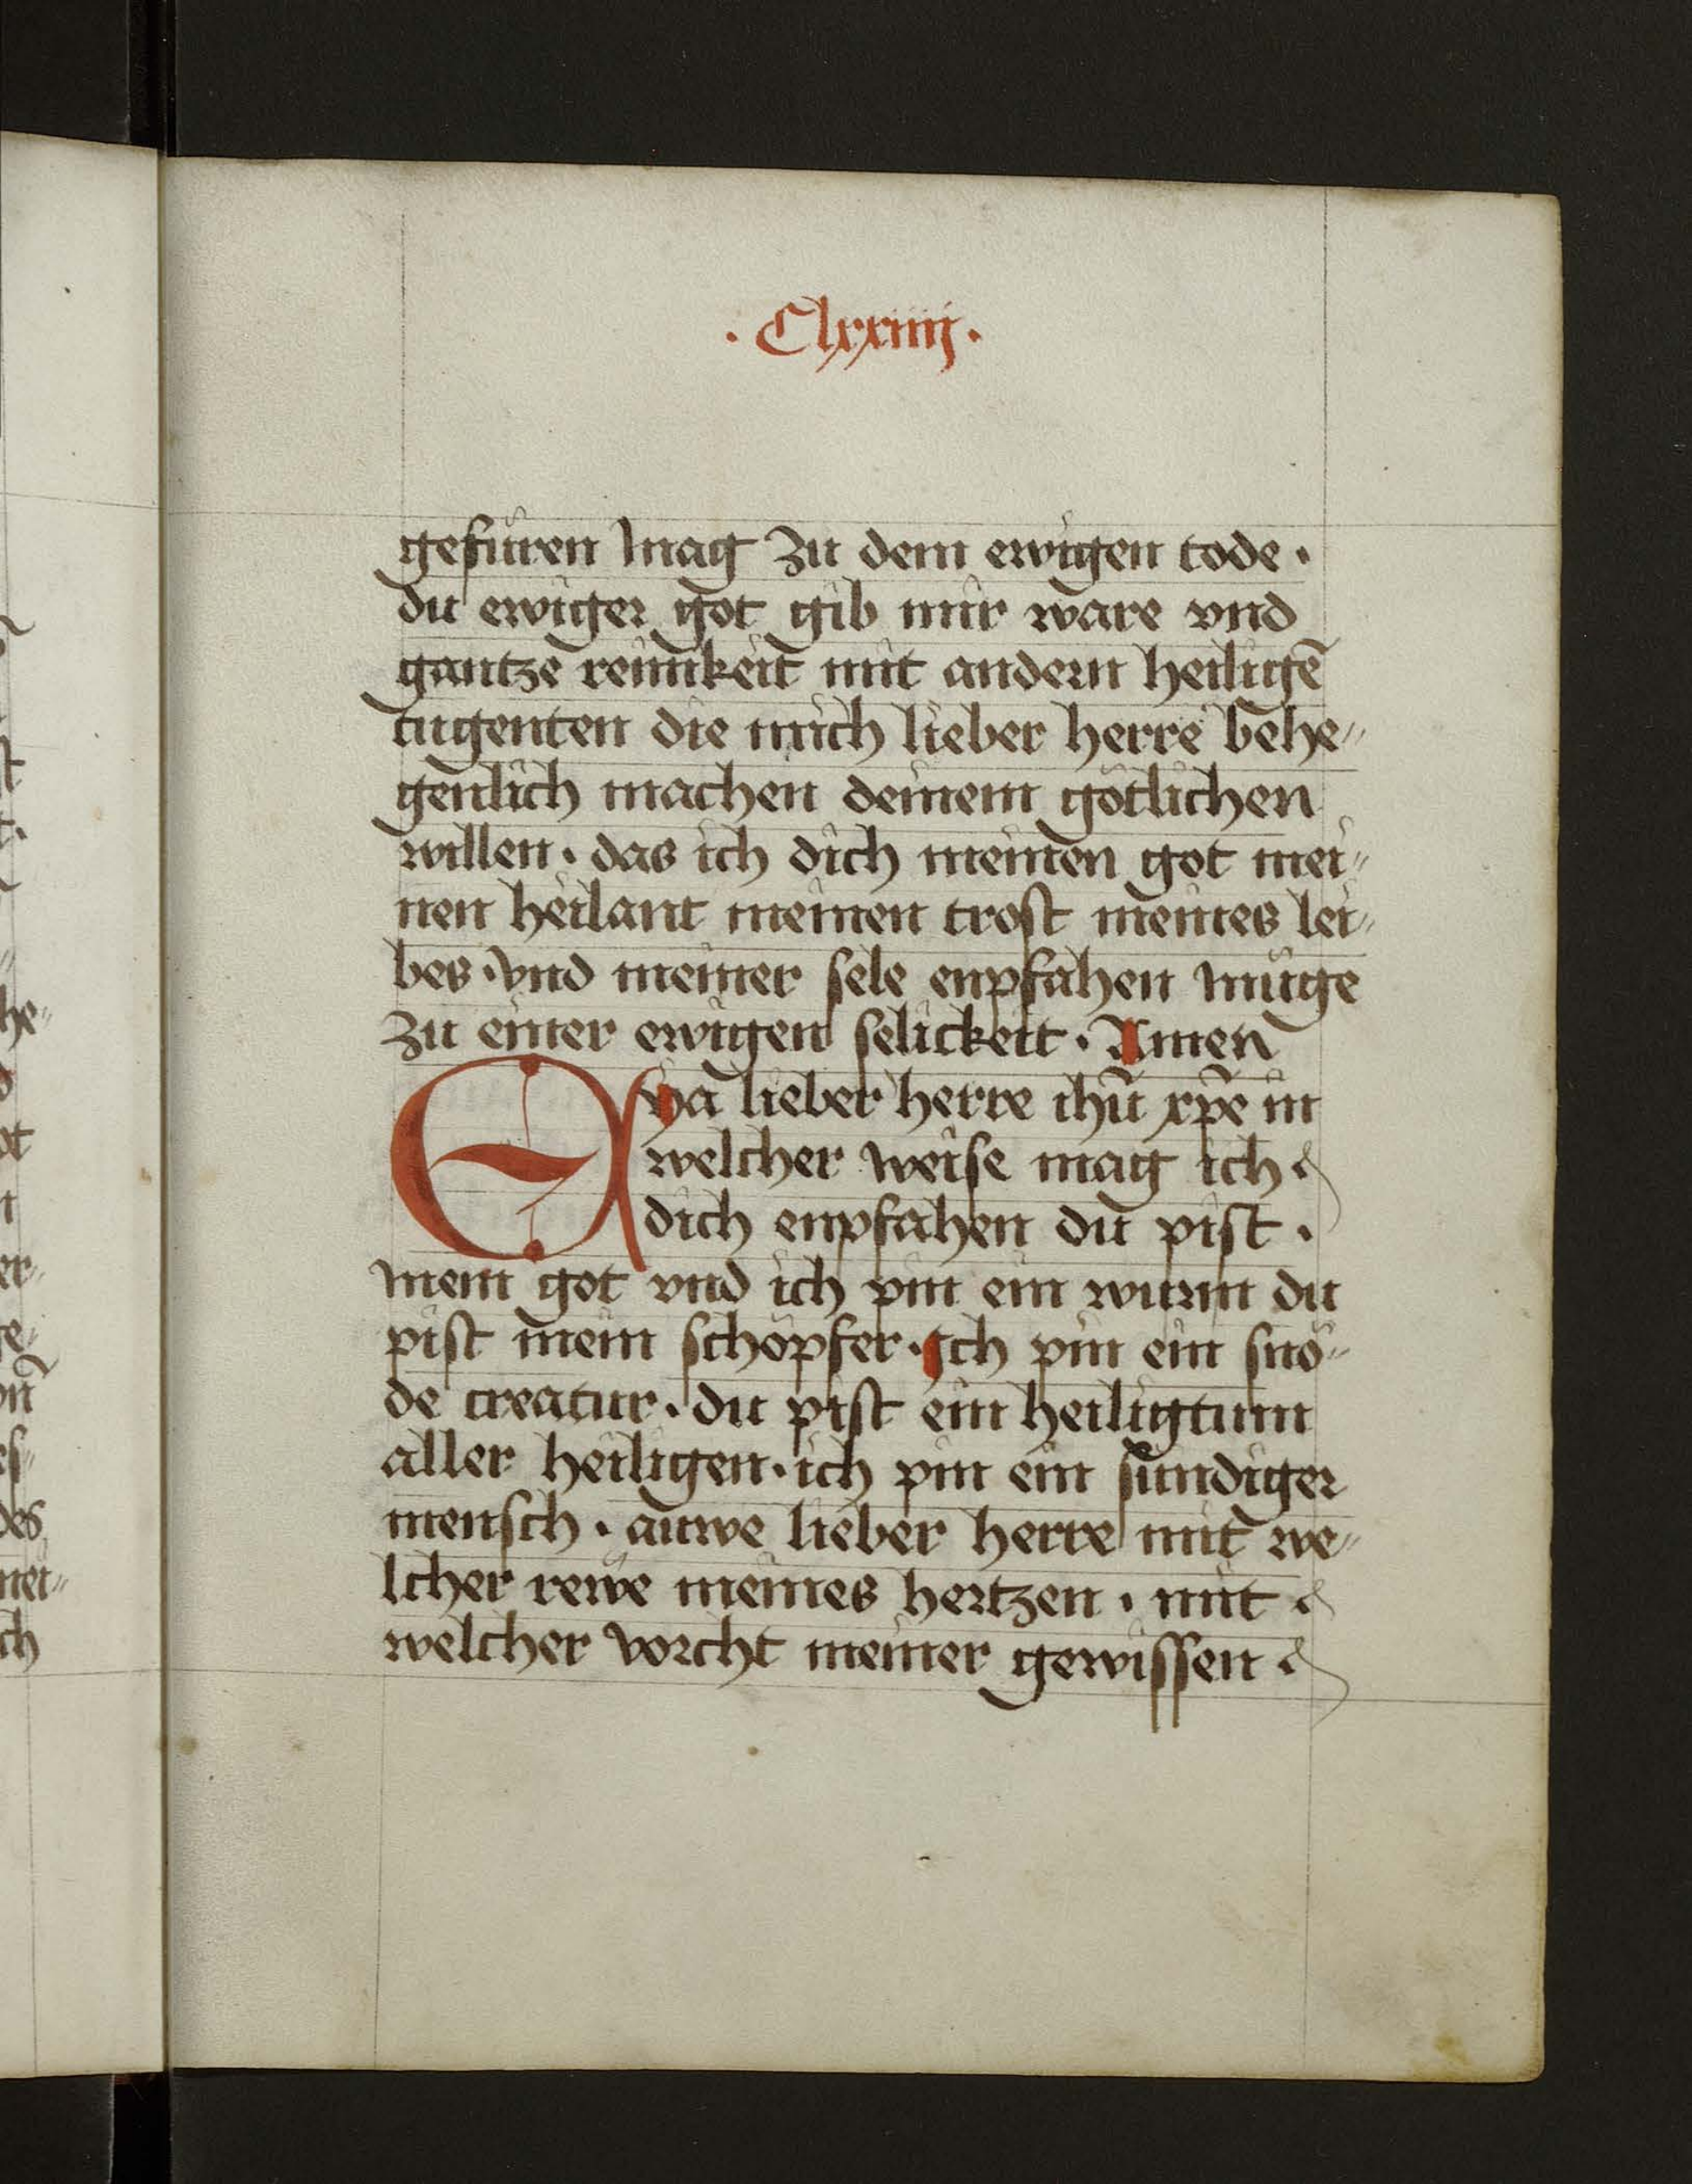 · Clxxiiij ·
gefüren mag zu dem ewigen tode ·
du ewiger got gib mir ware vnd
gantze reinikeit mit andern heiligē
tugenten die mich lieber herre behe〃
genlich machen deinem götlichen
willen · das ich dich meinen got mei〃
nen heilant meinen trost meines lei〃
bes · vnd meiner sele enpfahen müge
zu einer ewigen selickeit · Amen
Eya lieber herre ihū xp̄e in
welcher weise mag ich
dich enpfahen du pist ·
mein got vnd ich pin ein wurm du
pist mein schöpfer · Ich pin ein snö〃
de creatur · du pist ein heiligtum
aller heiligen · ich pin ein sündiger
mensch · auwe lieber herre mit we〃
lcher rewe meines hertzen · mit
welcher vorcht meiner gewissen